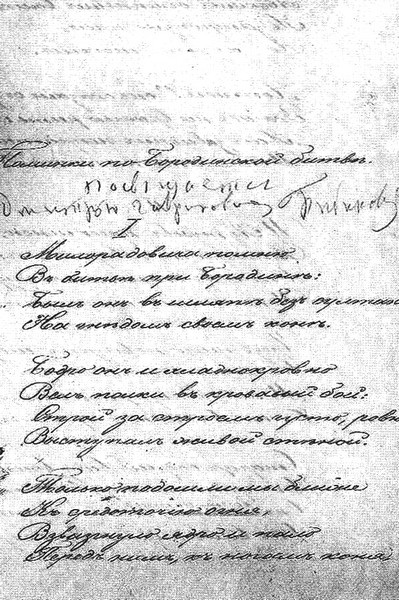 Поминки по Бородинской битвѣ.
посвящается
Дмитрію Гавриловичу Бибикову
I
Милорадовича помню
Въ битвѣ при Бородинѣ:
Былъ онъ въ шляпѣ безъ султана
На гнѣдомъ своемъ конѣ.
Бодро онъ и хладнокровно
Велъ полки въ кровавый бой:
Строй за строемъ густо, ровно
Выступалъ живой стѣной.
Только подошли мы ближе
Къ средоточію огня,
Взвизгнуло ядро и пало
Передъ нимъ, къ ногамъ коня,